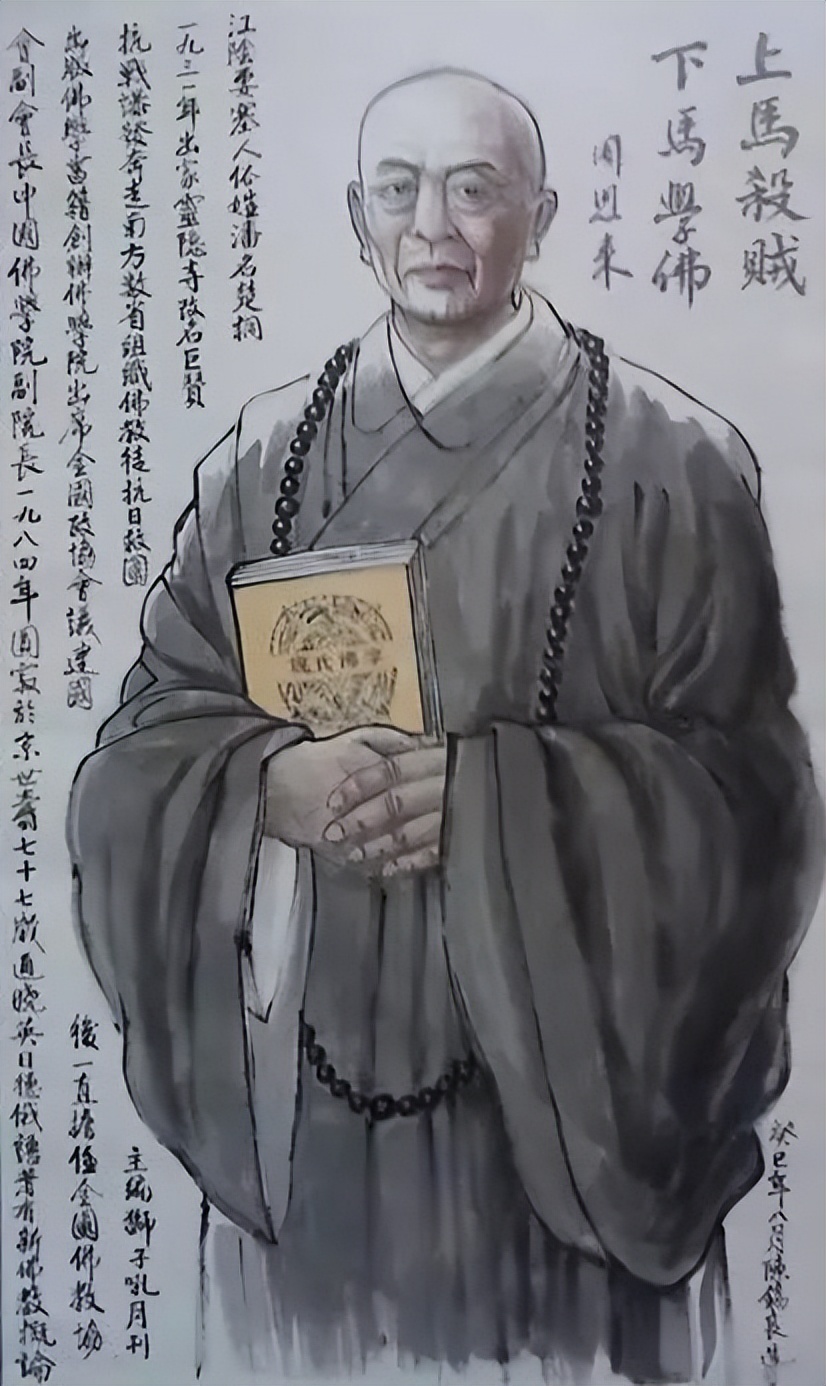 上馬殺賊
下馬學佛
周恩來
江陰要塞人俗姓潘名楚桐
一九三一年出家靈隱寺改名巨贊
抗戰爆發奔走南方數省組織佛教徒抗日救國
主編獅子吼月刊
出版佛學書籍創辦佛學院出席全國政協會議建國
後一直擔任全國佛教協
會副會長中國佛學院副院長一九八四年圓寂於京世壽七十七歲通曉英日德俄語著有新佛教概論
癸巳年八月陳錫良造